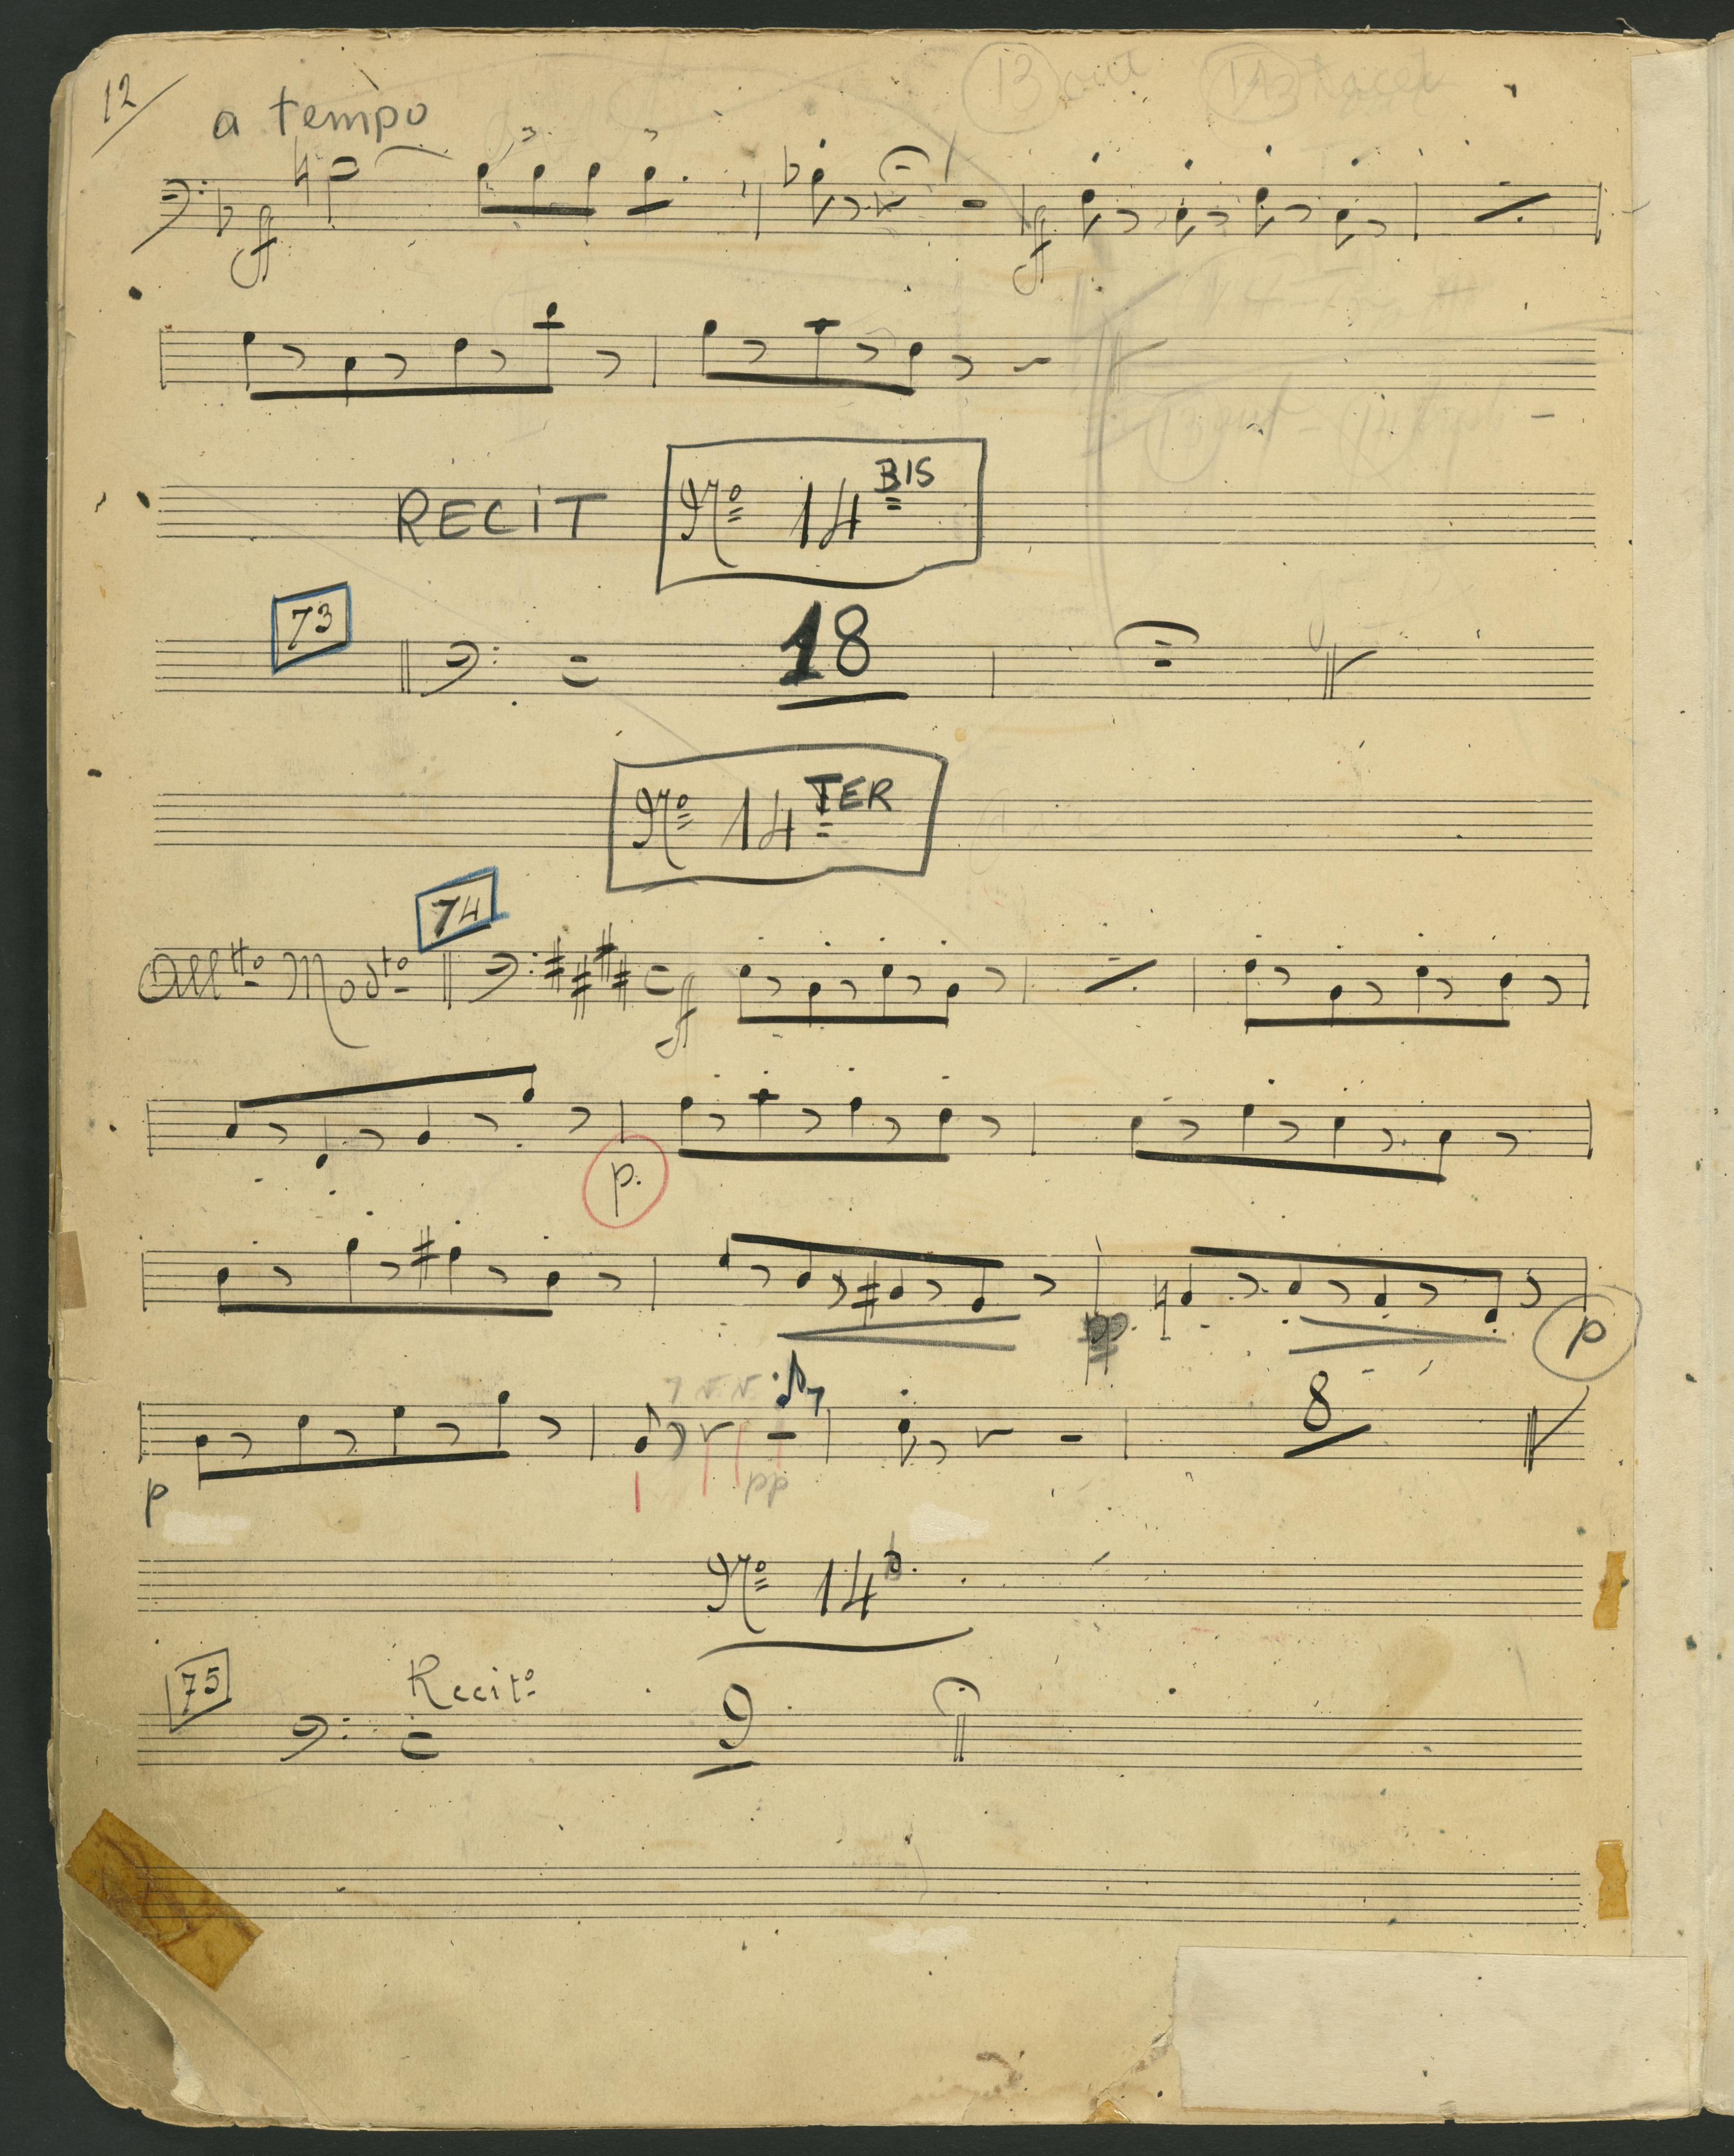 12
13 out 14B tacet
a tempo
ff ff
13 out - 14
RECIT Nº 14 BIS
73 18
Nº 14 TER
74
All.tto Mod.to ff
p.
pp p
8
p pp
Nº 14 b.
75 Recit.o 9